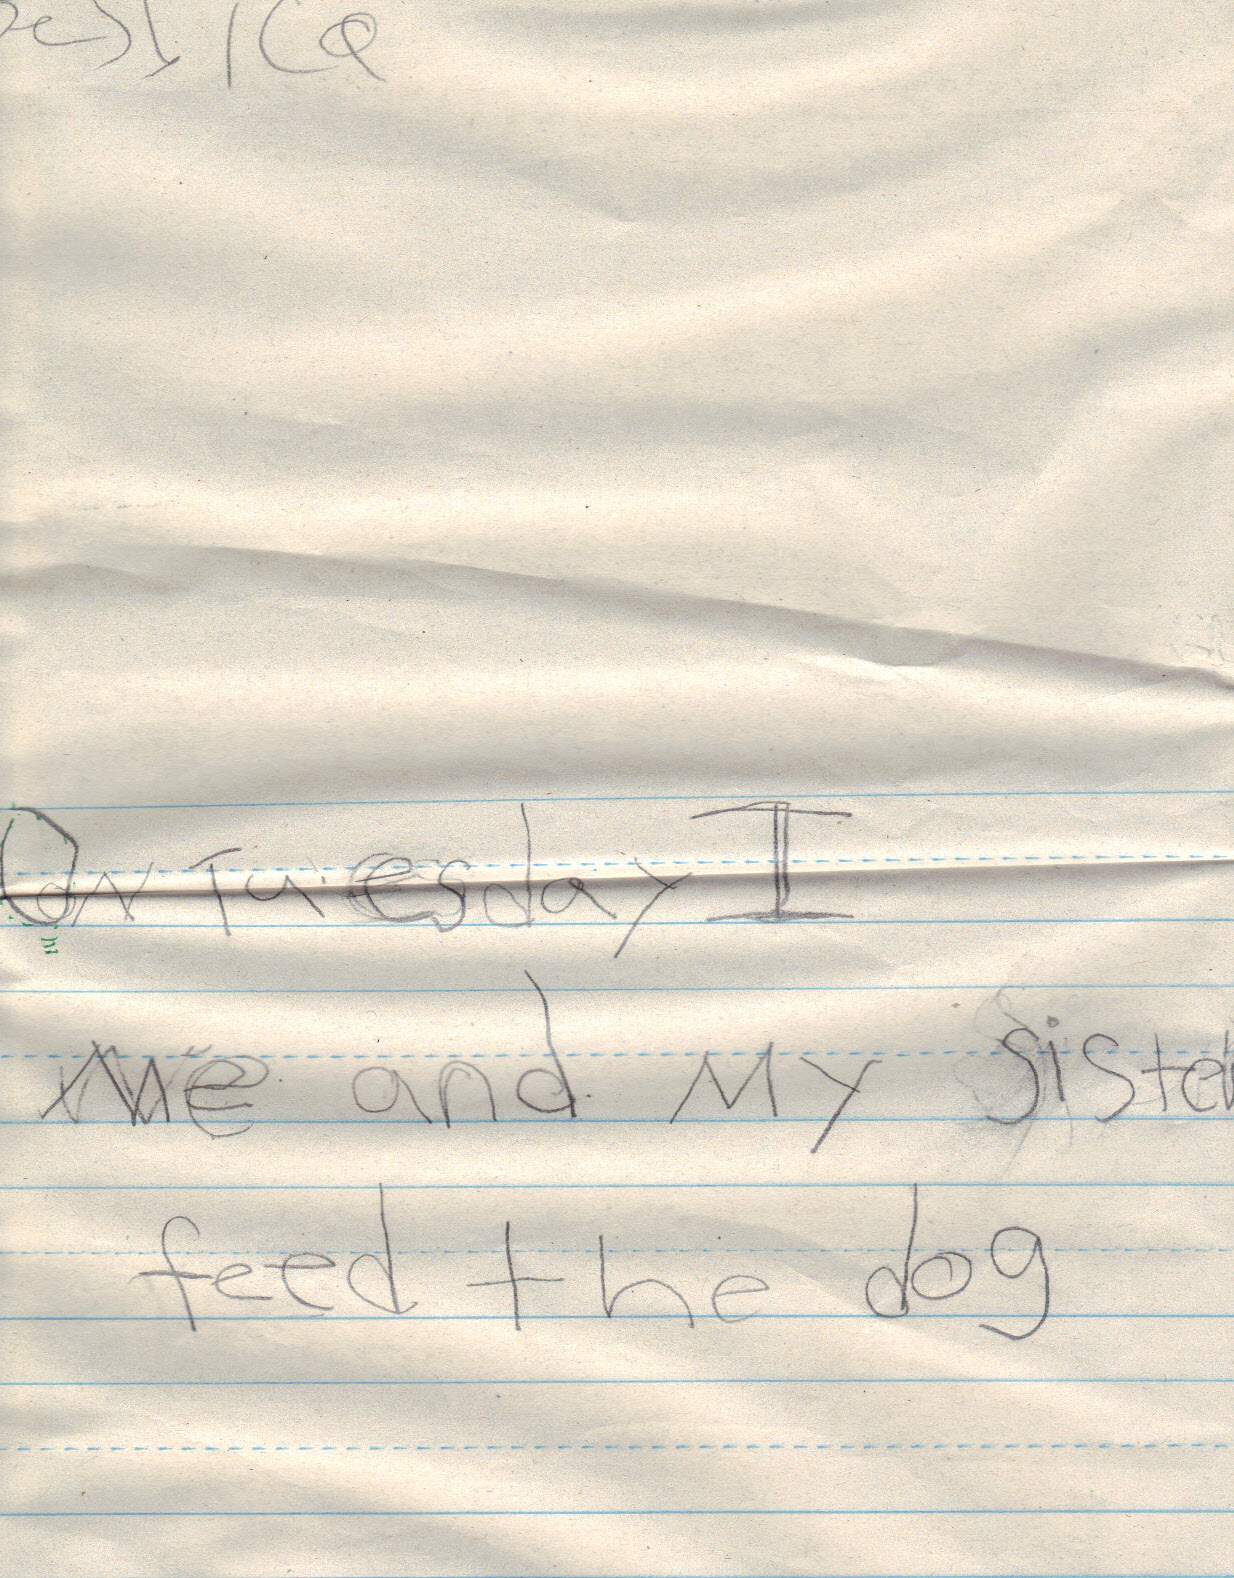 On Tuesday I
Me and My sister
feed the dog